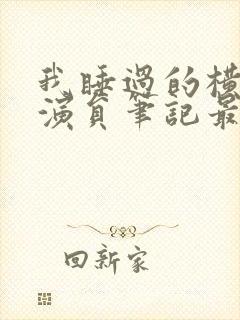 我睡過的橫
演員筆記最
回新家